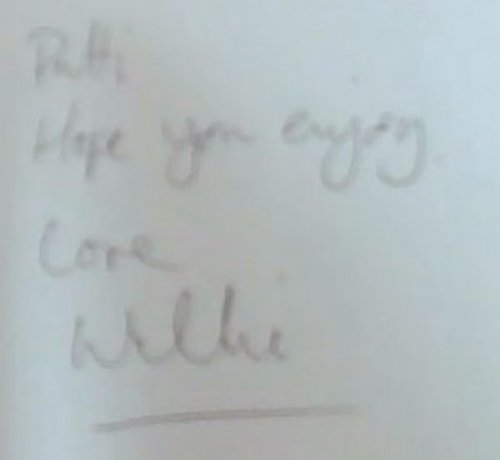 Patti
Hope you enjoy.
Love
Willie